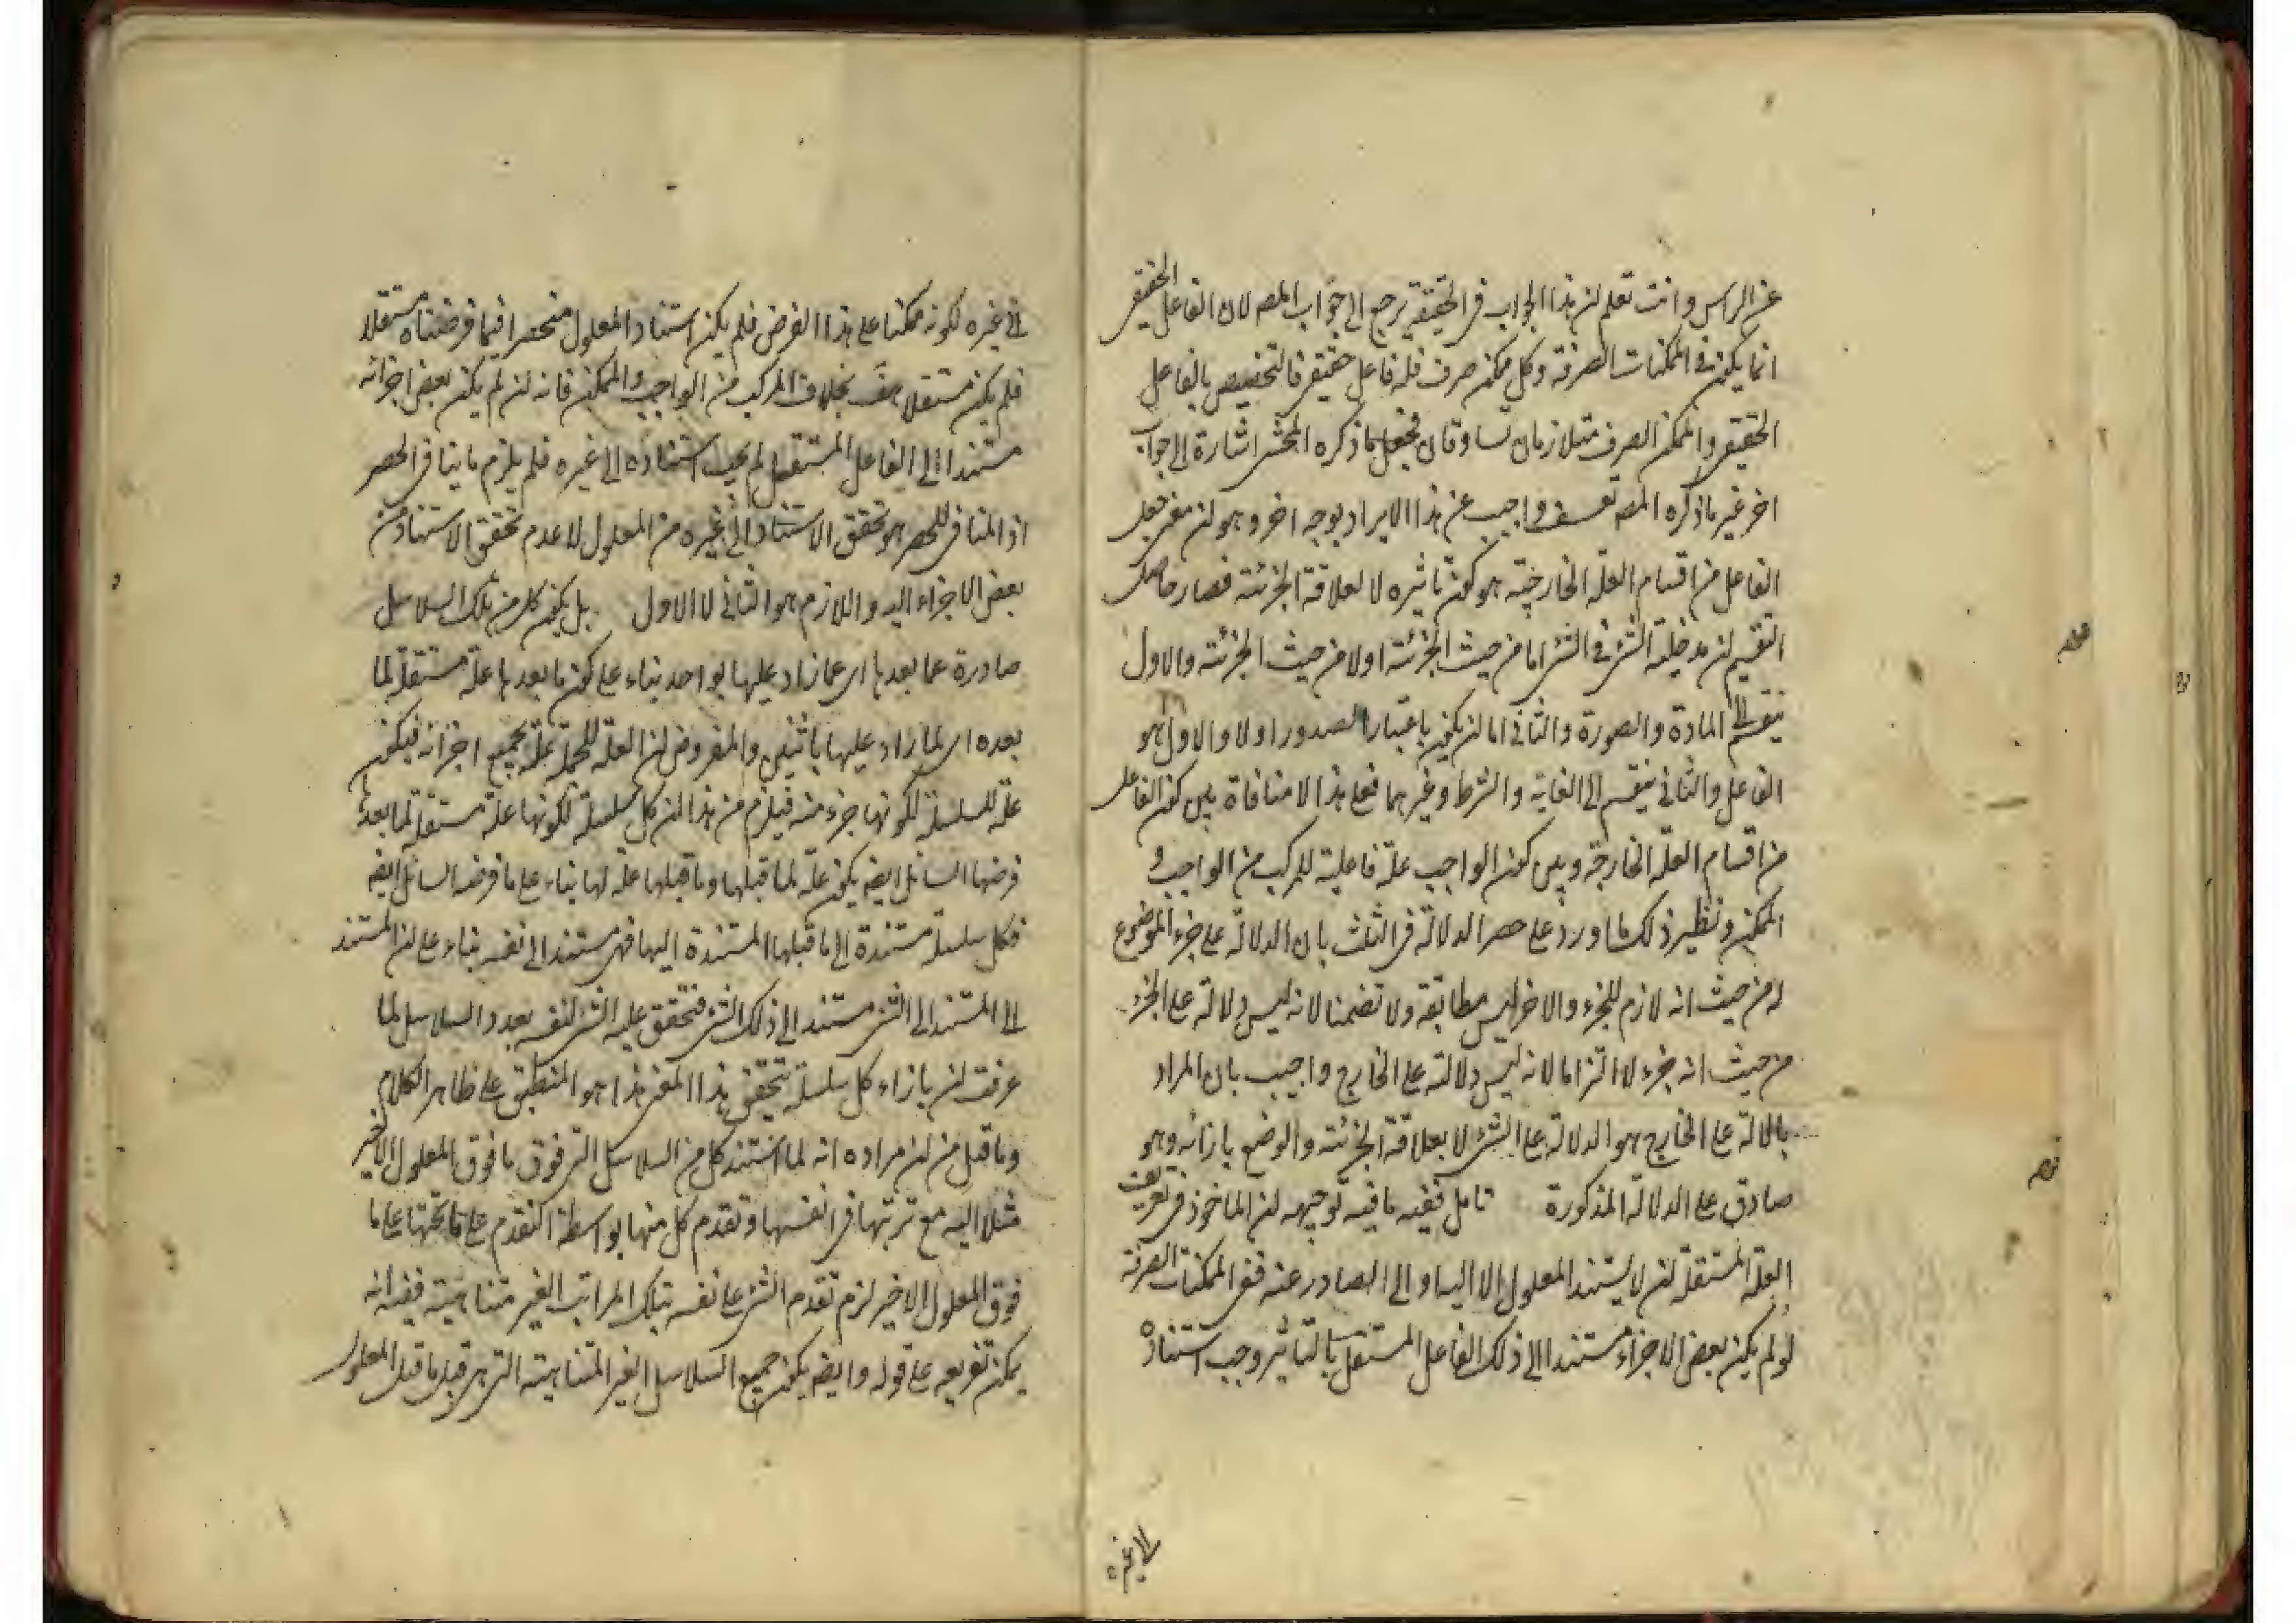 عن الراس وانت تعلم ان هذا الجواب في الحقيقة يرجع الى جواب المصه لان الفاعل الحقيقي
انما يكون في الممكنات الصرفة وكل ممكن صرف فله فاعل حقيقي فالتخصيص بالفاعل
الحقيقي والممكن الصرف متلازمان متساوقان فجعل ما ذكره المحشي اشارة الى جواب
اخر غير ما ذكره المصه تعسف واجيب عن هذا الايراد بوجه اخر وهو ان معنى جعل
الفاعل من اقسام العلة الخارجية هو كون تاثيره لا لعلاقة الجزئية فصار حاصل
التقسيم ان مدخلية الشئ في الشئ اما من حيث الجزئية او لا من حيث الجزئية والاول
ينقسم الى المادة والصورة والثاني اما ان يكون باعتبار الصدور اولا والاول هو
الفاعل والثاني ينقسم الى الغاية والشرط وغيرهما فعلى هذا لا منافاة بين كون الفاعل
من اقسام العلة الخارجة وبين كون الواجب علة فاعلية للمركب من الواجب و
الممكن ونظير ذلك ما ورد على حصر الدلالة في الثلث بان الدلالة على جزء الموضوع
له من حيث انه لازم للجزء والاخر ليس مطابقة ولا تضمنا لانه ليس دلالة على الجزء
من حيث انه جزء لا التزاما لانه ليس دلالته على الخارج واجيب بان المراد
بالدلالة على الخارج هو الدلالة على الشئ لا بعلاقة الجزئية والوضع بازائه وهو
صادق على الدلالة المذكورة تامل ففيه ما فيه توجيهه ان الماخوذ في تعريف
العلة المستقلة ان لا يستند المعلول الا اليه او الى الصادر عنه ففي الممكنات الصرفة
لو لم يكن بعض الاجزاء مستندا الى ذلك الفاعل المستقل بالتاثير وجب استناده
الى غيره
الى غيره لكونه ممكنا على هذا الفرض فلم يكن استناد المعلول منحصرا فيما فرضناه مستقلا
فلم يكن مستقلا هف بخلاف المركب من الواجب والممكن فانه ان لم يكن بعض اجزائه
مستندا الى الفاعل المستقل لم يجب استناده الى غيره فلم يلزم ما ينافي الحصر
اذ المنافي للحصر هو تحقق الاستناد الى غيره من المعلول لا عدم تحقق الاستناد من
بعض الاجزاء اليه واللازم هو الثاني لا الاول بل يكون كل من تلك السلاسل
صادرة عما بعدها اي عما زاد عليها بواحد بناء على كون ما بعدها علة مستقلة لما
بعده اي لما زاد عليها باثنين والمفروض ان العلة للجملة علة لجميع اجزائه فيكون
علة للسلسلة لكونها جزء منه فيلزم من هذا ان كل سلسلة لكونها علة مستقلة لما بعد
فرضها السائل ايضه يكون علة لما قبلها وما قبلها علة لها بناء على ما فرضه السائل ايضه
فكل سلسلة مستندة الى ما قبلها المستندة اليها فهي مستند الى نفسه بناء على ان المستند
الى المستند الى الشئ مستند الى ذلك الشئ فتحقق علية الشئ لنفسه بعدد السلاسل لما
عرفت ان بازاء كل سلسلة يتحقق هذا المعنى هذا هو المنطبق على ظاهر الكلام
وما قيل من ان مراده انه لما استند كل من السلاسل التي فوق ما فوق المعلول الاخير
مثلا اليه مع ترتبها في انفسها وتقدم كل منها بواسطة التقدم على ما تحتها على ما
فوق المعلول الاخير لزم تقدم الشئ على نفسه بتلك المراتب الغير متناهية ففيه انه
يمكن تفريعه على قوله وايضه يكون جميع السلاسل الغير المتناهية التي هي قبل ما قبل المعلول